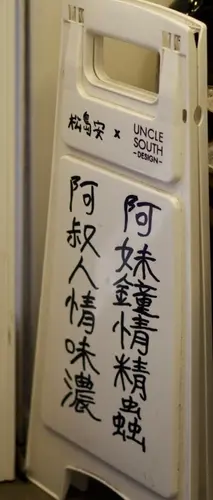 松島安 x UNCLE
SOUTH
-DESIGN-
阿妹鐘情精蟲
阿叔人情味濃